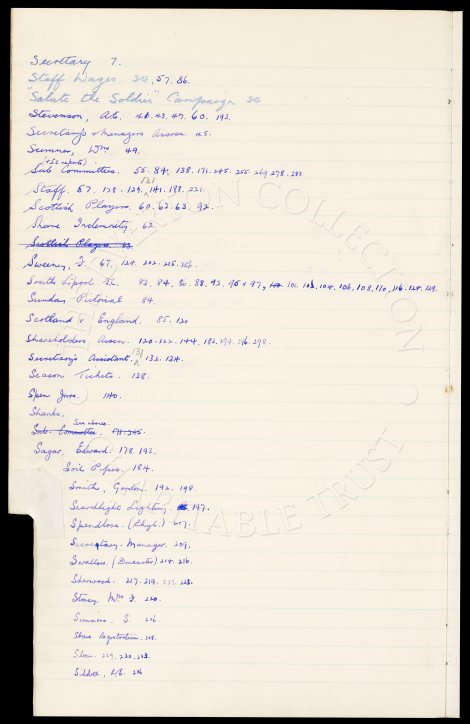 Secretary 7.
Staff Wages. 34, 57. 86.
"Salute the Soldier" Campaign 34
Stevenson, A.E. 40. 43. 47. 60. 193.
Secretary's & Managers Assocn. 45.
Sumner, Wm 49.
(+ S.L. reports)
Sub Committees. 55. 84. 138. 171. 245. 255. 269. 278. 283
121
Staff. 57. 128. 129. 141. 198. 221.
Scottish Players. 60. 62. 63. 92.
Share Indemnity. 63.
Scottish Players 63
Sweeney, F. 67. 124. 202. 205. 254.
South L'pool F.C. 82. 84. 86. 88. 92. 95 & 97, 101. 103. 104. 106. 108. 110. 116. 124. 129.
Sunday Pictorial 84.
Scotland v England. 85. 120
Shareholders Assen. 120. 122. 144. 182. 294. 296. 298.
Secretary's Assistant. 131 132. 134.
Season Tickets. 138.
Spen Junr. 140.
Shanks,
See above.
Sub. Committee. 171. 245.
Sagar, Edward. 178. 193.
Soil Pipes. 184.
Smith, Gordon. 192. 198.
Searchlight Lighting. 197.
Spendlove. (Rhyl.) 207.
Secretary-Manager. 209.
Swallow. (Doncaster) 214. 216.
Sherwood. 217. 219. 227. 223.
Storey, Mrs F. 220.
Simmons, S. 226.
Share Registration. 228.
Show. 229. 230. 233.
THE EVERTON COLLECTION
CHARITABLE TRUST